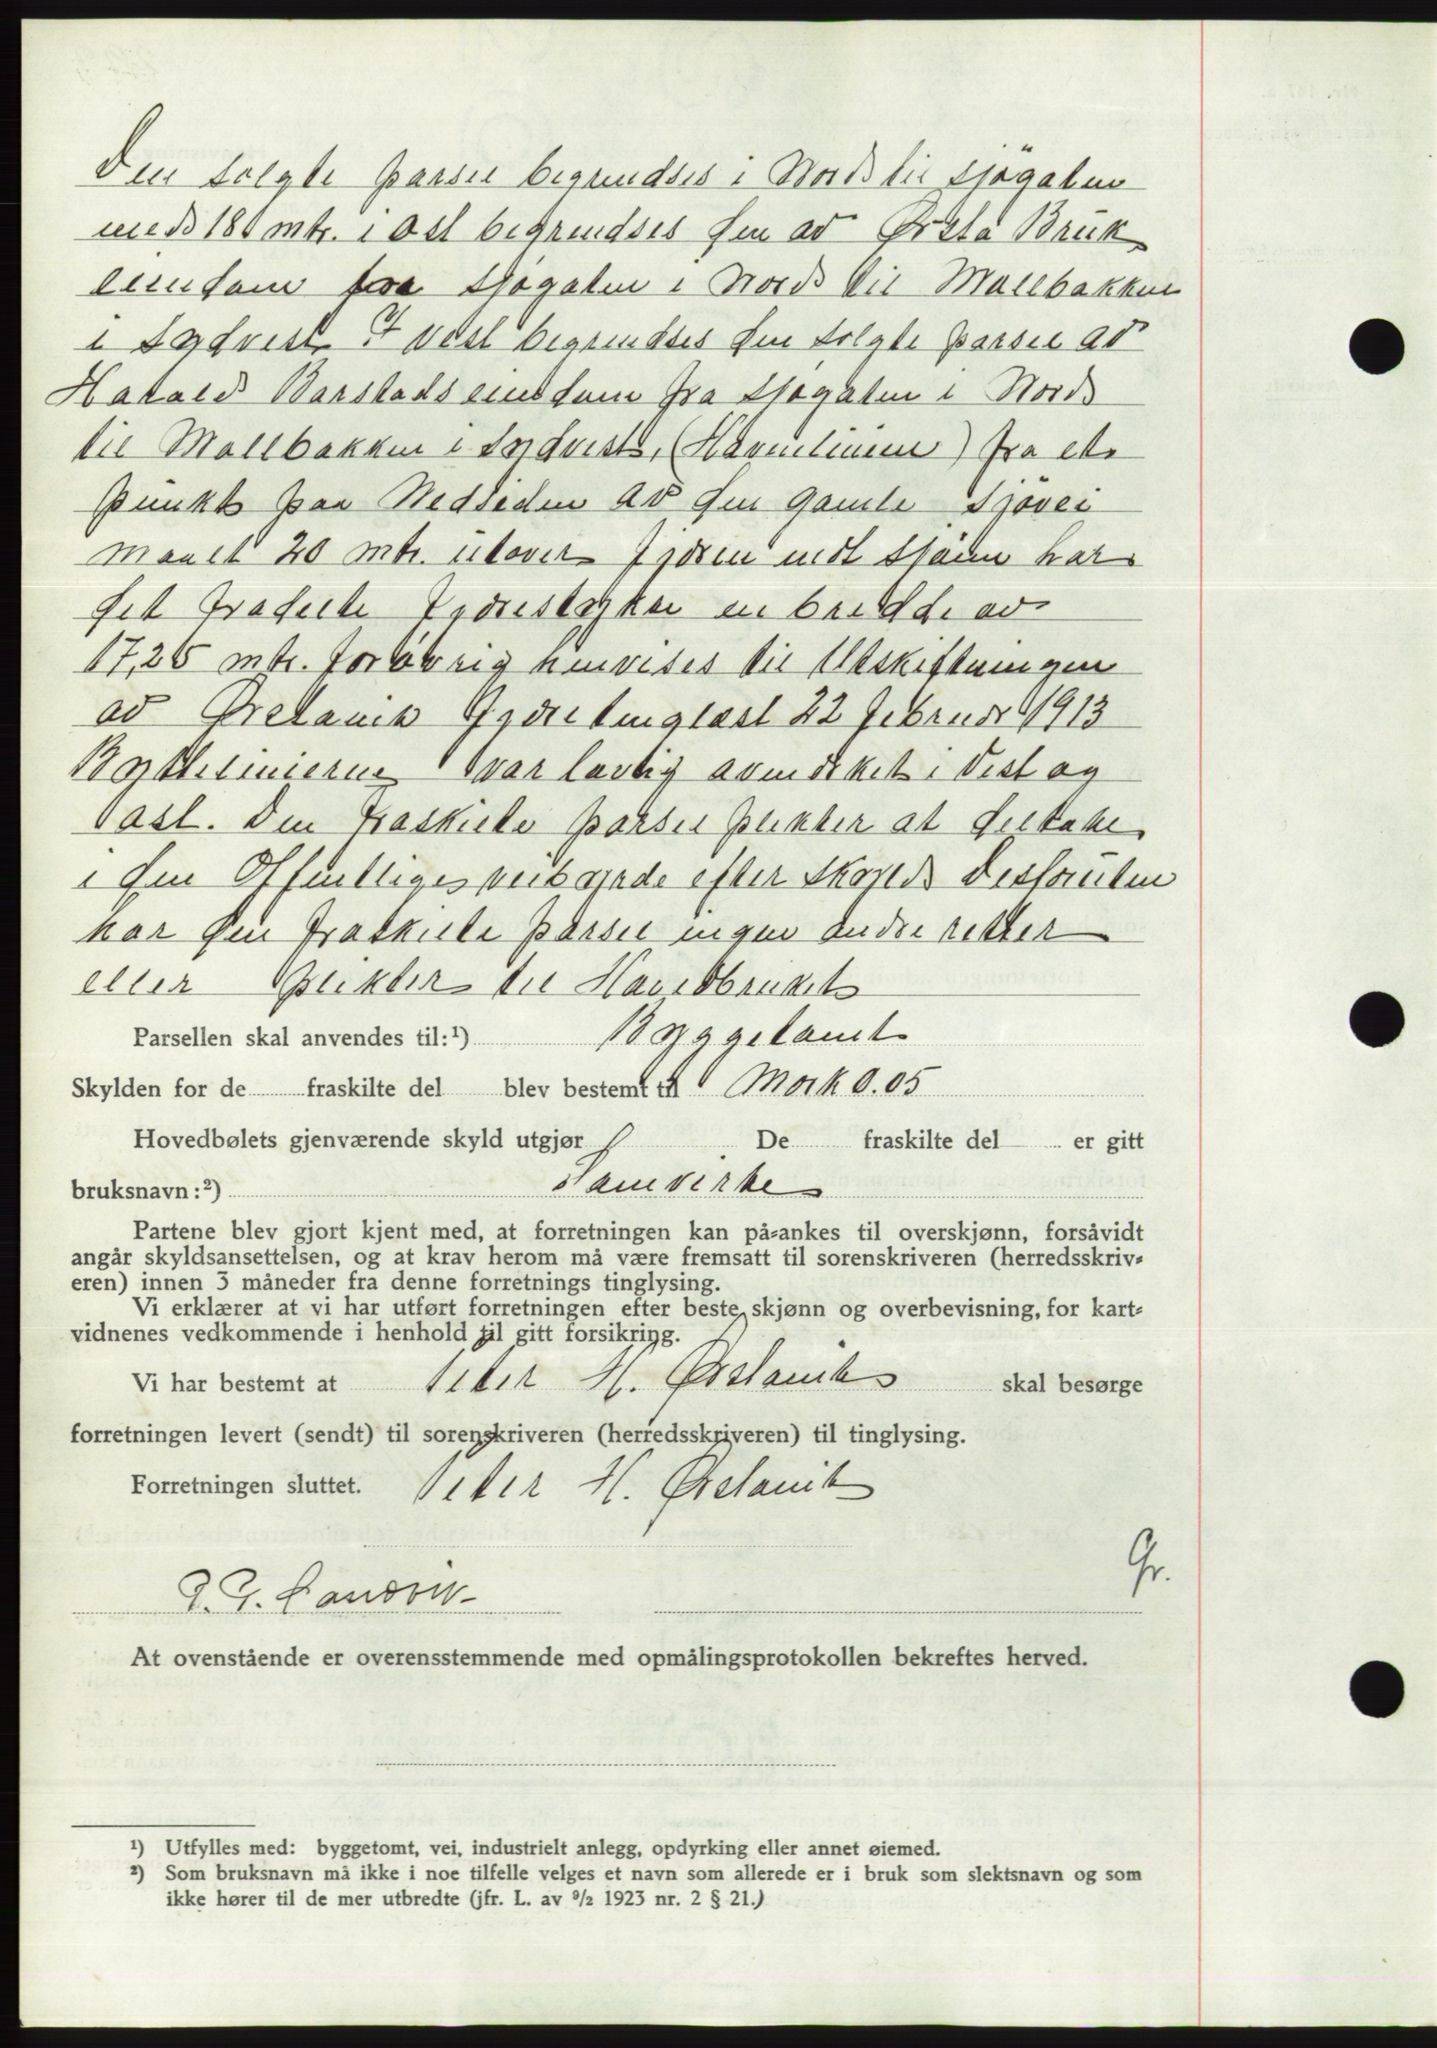 Den solgte parsel begrendses i Nord til sjøgaten
med 18 mtr. i Ost begrendses den av Ørsta Bruk
eiendom fra sjøgaten i Nord til Mallbakken
i Sydvest I vest begrendses den solgte parsel av
Harald Barstads eiendom fra sjøgaten i Nord
til Mallbakken i Sydvest, (Havnelinien) fra et
punkt paa Nedsiden av den gamle Sjøvei
maalt 20 mtr. utover fjøren mdt sjøen har
det fradelte fjørestykke en bredde av
17,25 mtr. forøvrig henvises til Utskiftningen
av Ørstavik fjøre tinglæst 22 februar 1913
Byttelinierne var lovlig avmerket i Vest og
ost. Den fraskilte parsel plikter at deltake
i den Offentliges veibyrde efter skyld Desforuten
har den fraskilte parsel ingen andre retter
eller plikter til Hovedbruket
Parsellen skal anvendes til:¹) Byggetomt
Skylden for de fraskilte del blev bestemt til Mark 0.05
Hovedbølets gjenværende skyld utgjør De fraskilte del er gitt
bruksnavn:²) Samvirke
Partene blev gjort kjent med, at forretningen kan på-ankes til overskjønn, forsåvidt
angår skyldsansettelsen, og at krav herom må være fremsatt til sorenskriveren (herredsskriv-
eren) innen 3 måneder fra denne forretnings tinglysing.
Vi erklærer at vi har utført forretningen efter beste skjønn og overbevisning, for kart-
vidnenes vedkommende i henhold til gitt forsikring.
Vi har bestemt at Peter H. Ørstavik skal besørge
forretningen levert (sendt) til sorenskriveren (herredsskriveren) til tinglysing.
Forretningen sluttet. Peter H. Ørstavik
Gr.
At ovenstående er overensstemmende med opmålingsprotokollen bekreftes herved.
¹) Utfylles med: byggetomt, vei, industrielt anlegg, opdyrking eller annet øiemed.
²) Som bruksnavn må ikke i noe tilfelle velges et navn som allerede er i bruk som slektsnavn og som
ikke hører til de mer utbredte (jfr. L. av ⁹/₂ 1923 nr. 2 § 21.)